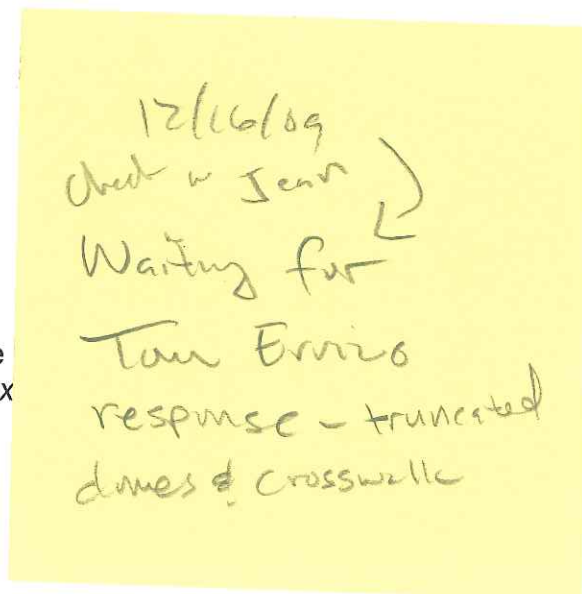 12/16/09
Check w Jean
Waiting for
Tom
response - truncated
domes & crosswalk
e
x